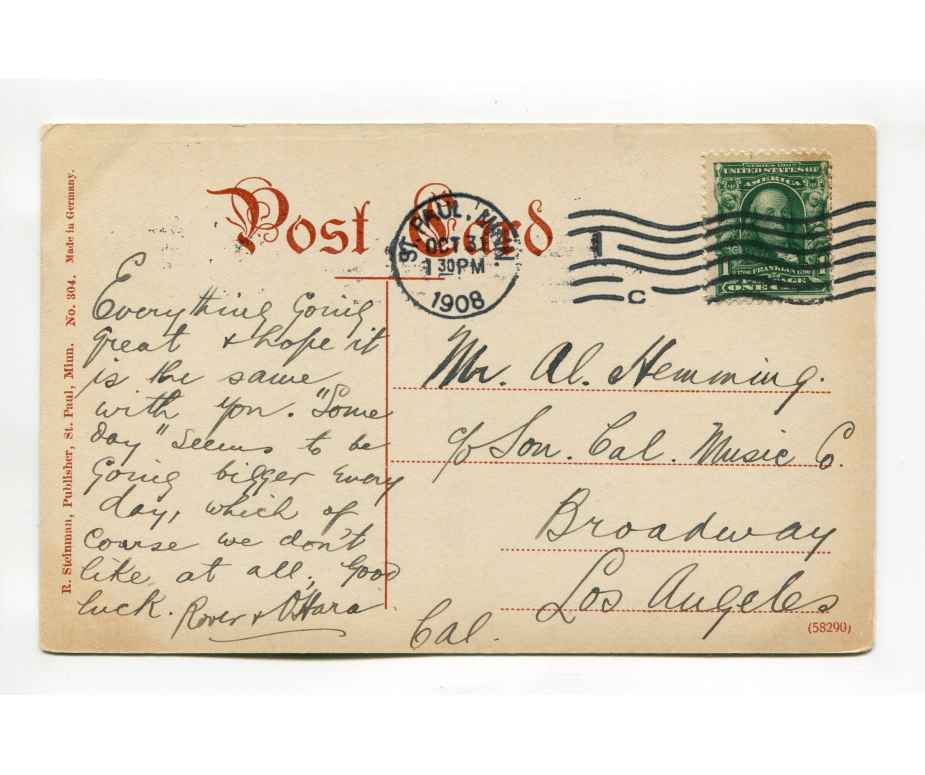 Post Card
ST. PAUL, MINN.
OCT 31
1 30 PM
1908
1
C
SERIES 1902
UNITED STATES OF
AMERICA
FRANKLIN
ONE
R. Steinman, Publisher, St. Paul, Minn. No. 304. Made in Germany.
Everything Going
great & hope it
is the same
with you. "Some
day" seems to be
Going bigger every
day, which of
course we don't
like at all, Good
luck. Rover & O'Hara
Mr. Al. Hemming.
c/o Son. Cal. Music Co.
Broadway
Los Angeles
Cal.
(58290)